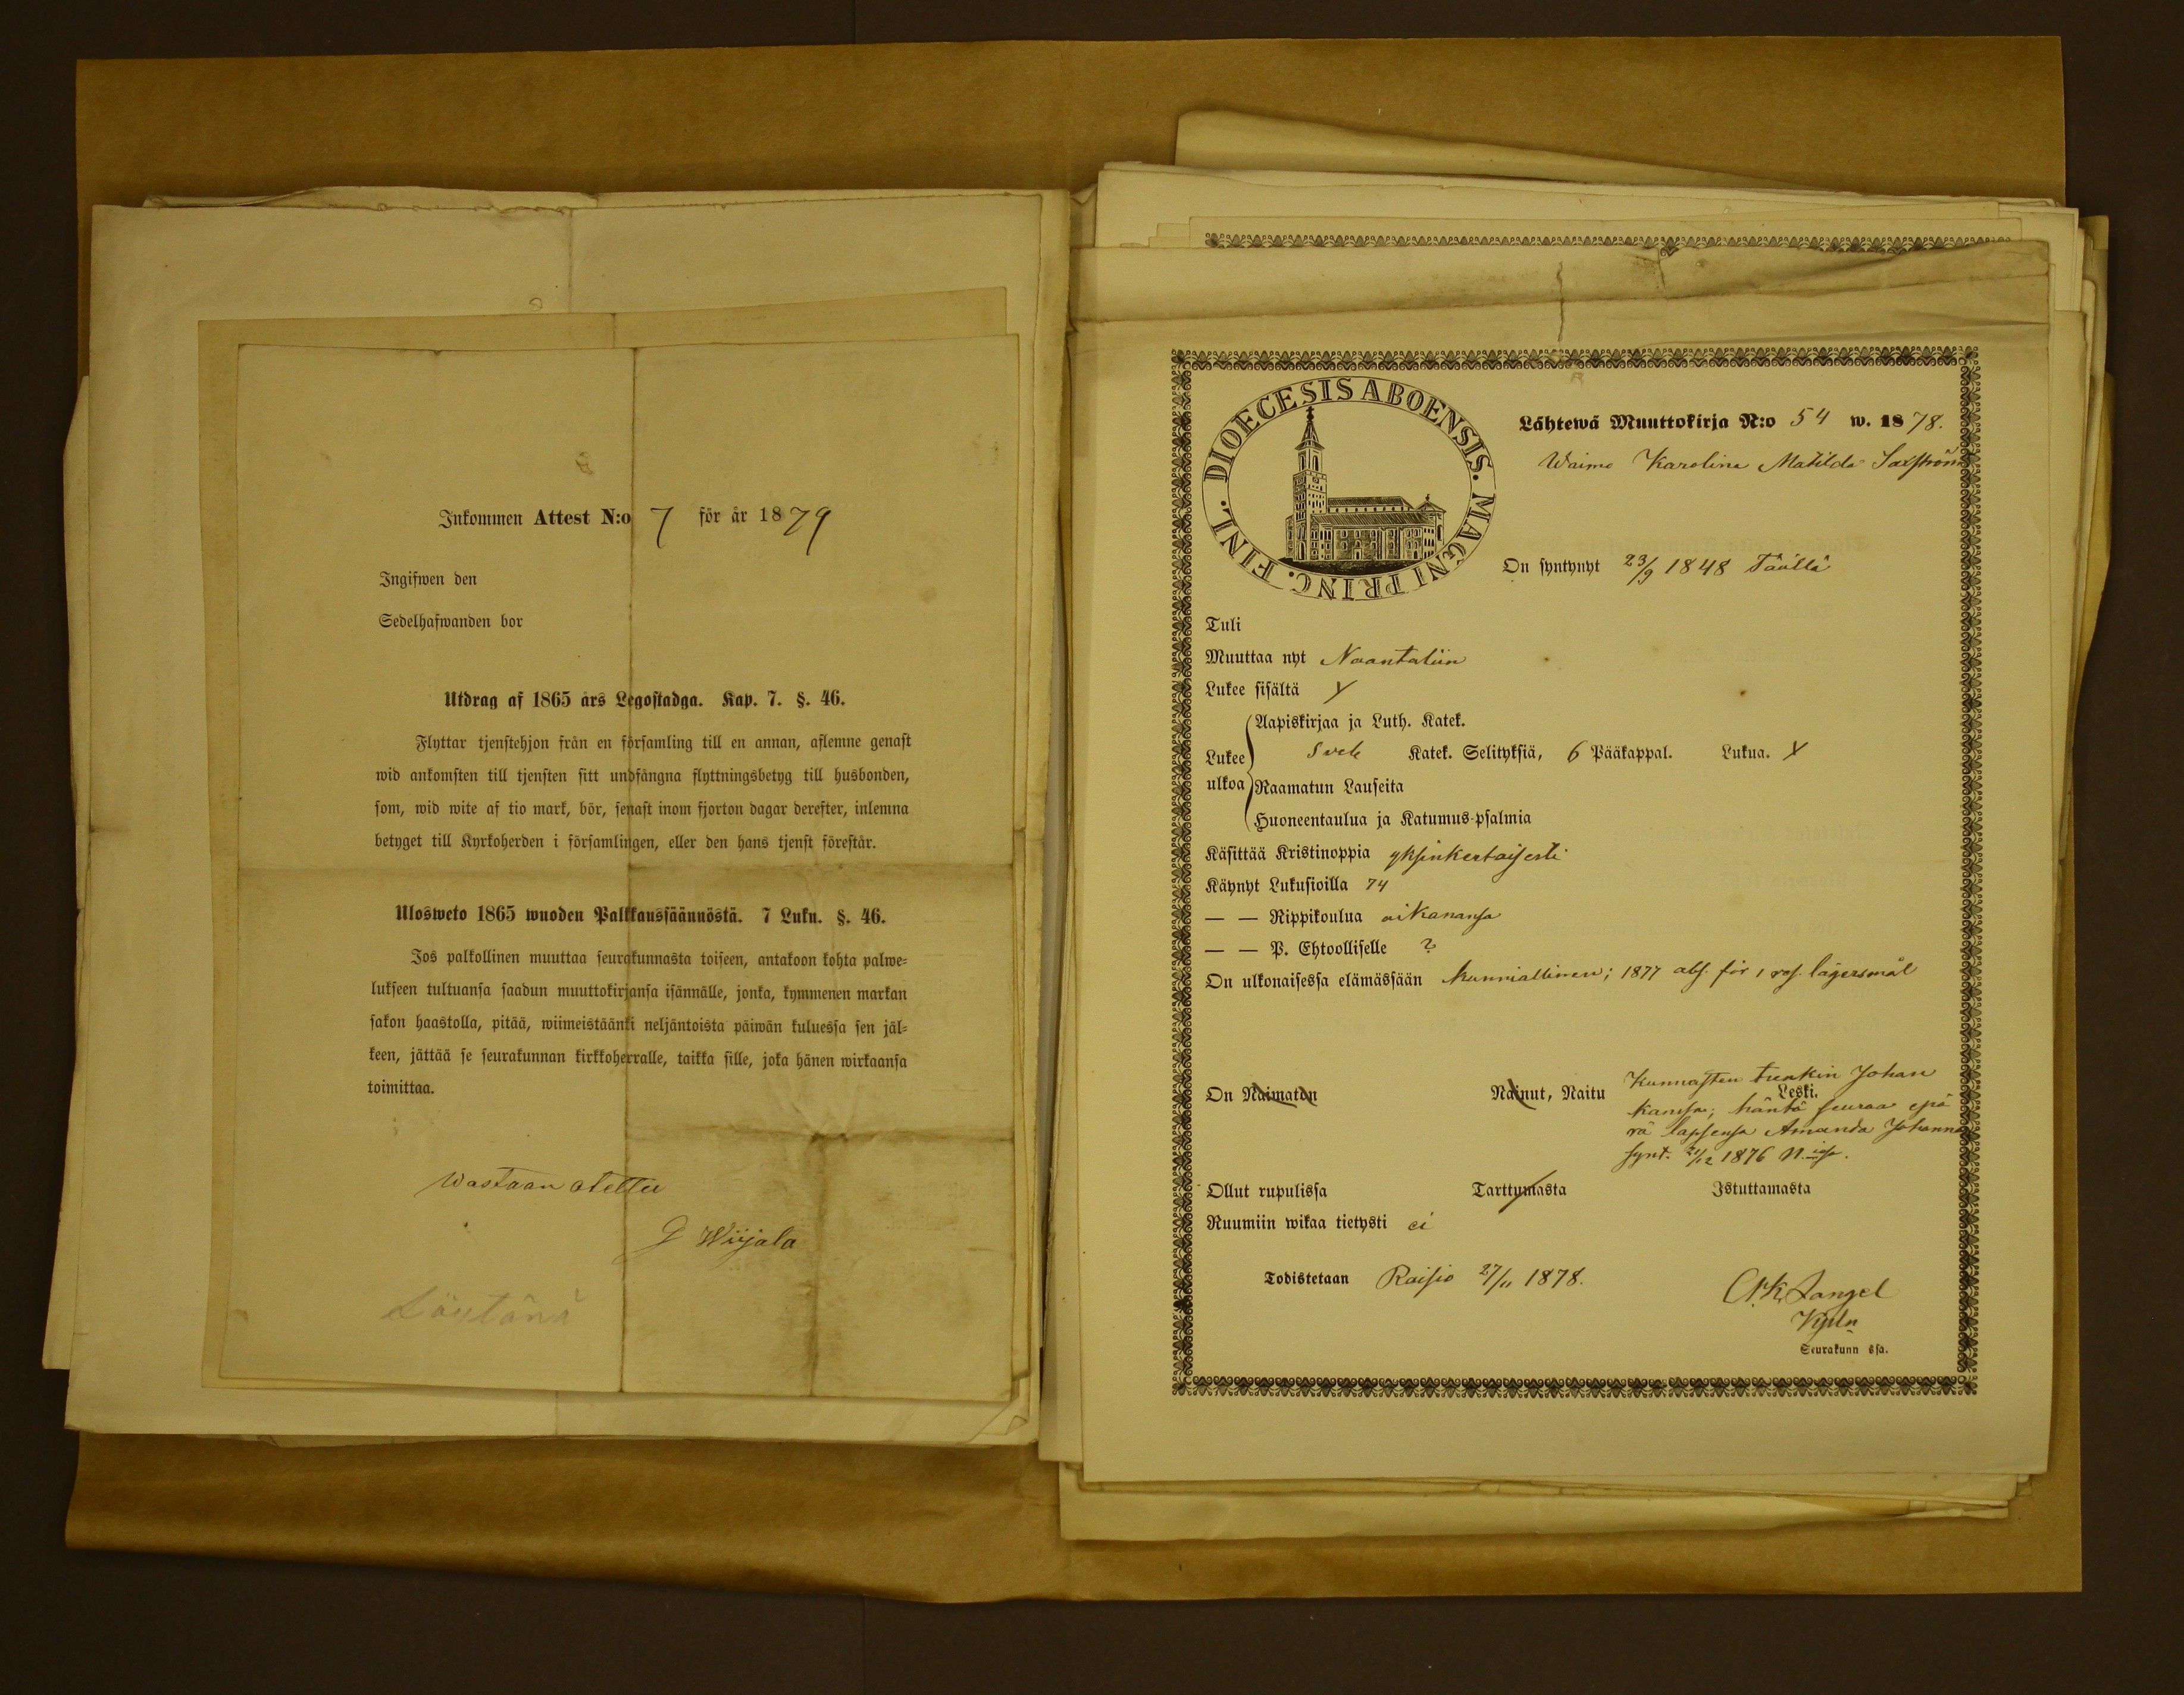 Inkommen Attest N:o 7 för år 1879
Ingifwen den
Sedelhafwanden bor
Utdrag af 1865 års Legostadga. Kap. 7. §. 46.
Flyttar tjenstehjon från en församling till en annan, aflemne genast
wid ankomsten till tjensten sitt undfångna flyttningsbetyg till husbonden,
som, wid wite af tio mark, bör, senast inom fjorton dagar derefter, inlemna
betyget till Kyrkoherden i församlingen, eller den hans tjenst förestår.
Ulosweto 1865 wuoden Palkkaussäännöstä. 7 Luku. §. 46.
Jos palkollinen muuttaa seurakunnasta toiseen, antakoon kohta palwe=
lukseen tultuansa saadun muuttokirjansa isännälle, jonka, kymmenen markan
sakon haastolla, pitää, wiimeistäänki neljäntoista päiwän kuluessa sen jäl=
keen, jättää se seurakunnan kirkkoherralle, taikka sille, joka hänen wirkaansa
toimittaa.
Wastaan otettu
G Wiijala
DIOECESIS ABOENSIS. MAGNI PRINC. FINL.
Lähtewä Muuttokirja N:o 54 w. 1878.
Waimo Karolina Matilda Saxström
On syntynyt 23/9 1848 Täällä
Tuli
Muuttaa nyt Naantaliin
Lukee sisältä Y
Lukee ulkoa
Aapiskirjaa ja Luth. Katek.
Sveb Katek. Selityksiä, 6 Pääkappal. Lukua. Y
Raamatun Lauseita
Huoneentaulua ja Katumus-psalmia
Käsittää Kristinoppia yksinkertaisesti
Käynyt Lukusioilla 74
— — Rippikoulua aikanansa
— — P. Ehtoolliselle ?
On ulkonaisessa elämässään kunniallinen; 1877 abs. för 1 res. lägersmål
On Naimaton Nainut, Naitu Kunnasten trenkin Johan
Leski.
kanssa; häntä seuraa epä
rä lapsensa Amanda Johanna
synt. 21/12 1876
Ollut rupulissa Tarttumasta Istuttamasta
Ruumiin wikaa tietysti ei
Todistetaan Raisio 27/11 1878.
Seurakunn ssa.